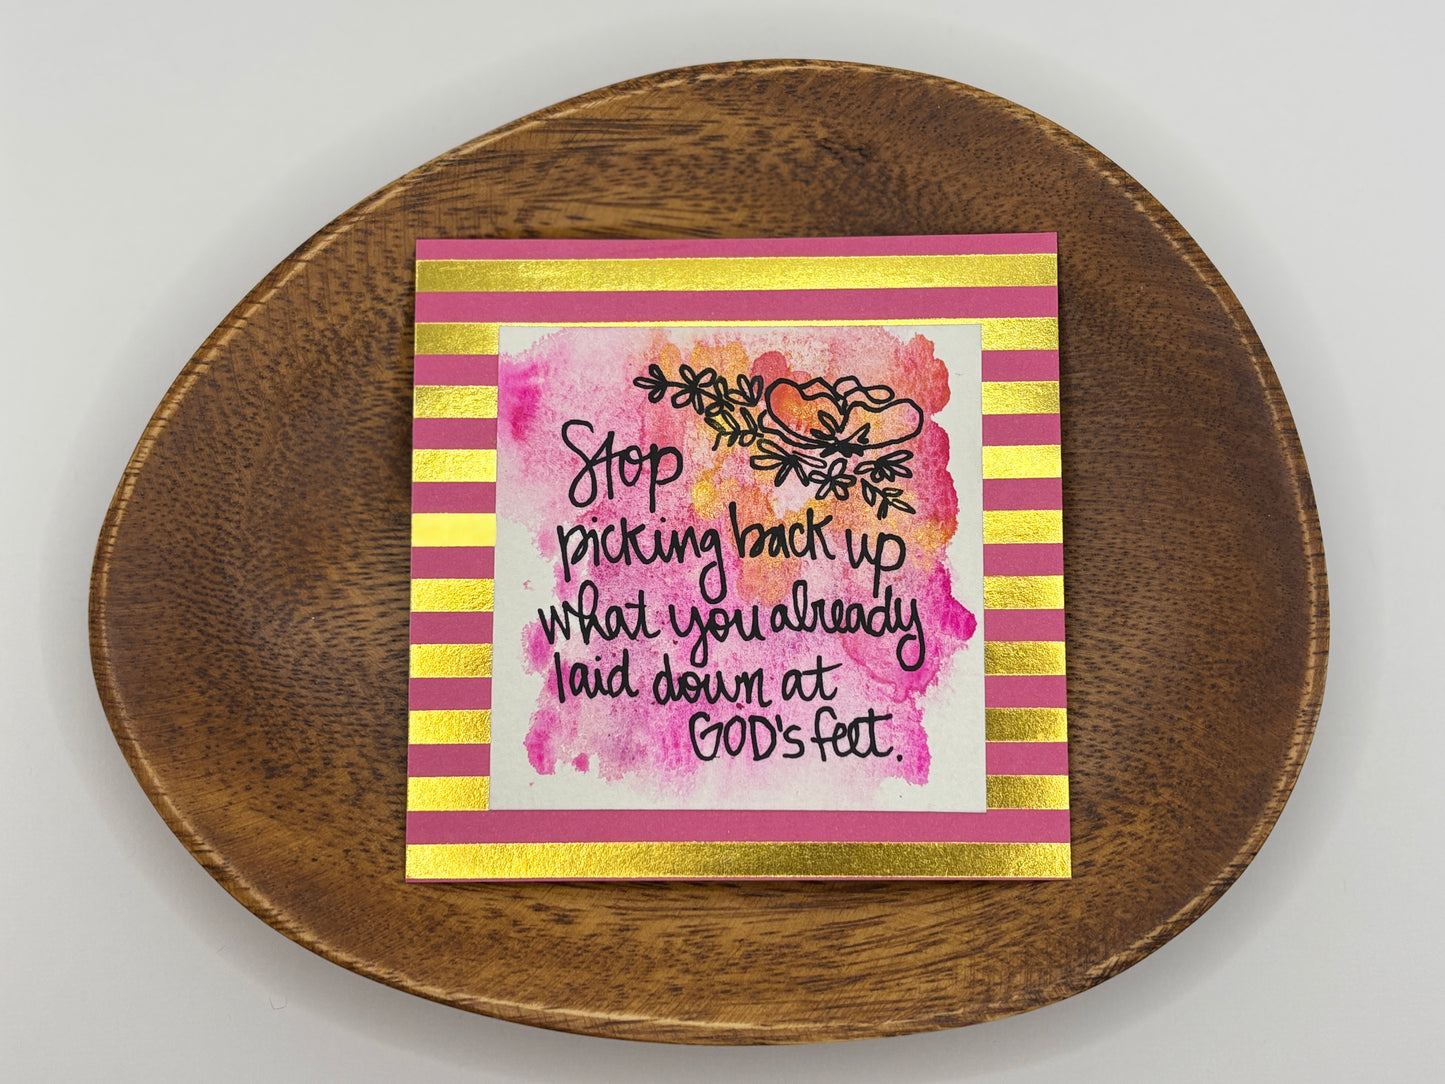 Stop
picking back up
what you already
laid down at
GOD's feet.